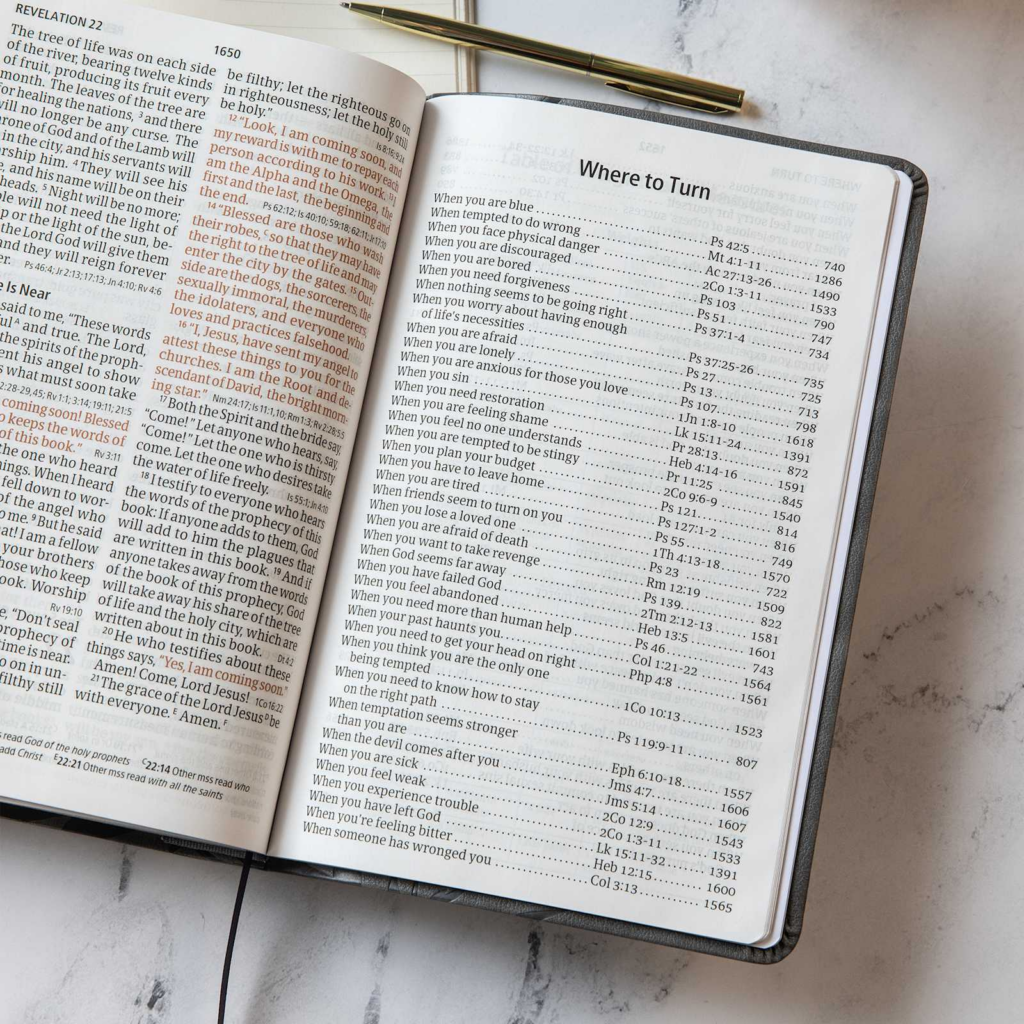 REVELATION 22
1650
The tree of life was on each side
of the river, bearing twelve kinds
of fruit, producing its fruit every
month. The leaves of the tree are
for healing the nations, ³ and there
will no longer be any curse. The
throne of God and of the Lamb will
in the city, and his servants will
worship him. ⁴ They will see his
, and his name will be on their
heads. ⁵ Night will be no more;
ple will not need the light of
p or the light of the sun, be-
the Lord God will give them
and they will reign forever
er. Ps 46:4; Jr 2:13; 17:13; Jn 4:10; Rv 4:6
e Is Near
said to me, "These words
ful ᴬ and true. The Lord,
the spirits of the proph-
ent his angel to show
s what must soon take
2:28-29,45; Rv 1:1; 3:14; 19:11; 21:5
coming soon! Blessed
o keeps the words of
of this book." Rv 3:11
the one who heard
hings. When I heard
fell down to wor-
of the angel who
o me. ⁹ But he said
at! I am a fellow
your brothers
hose who keep
ook. Worship
Rv 19:10
e, "Don't seal
prophecy of
time is near.
o on in un-
filthy still
be filthy; let the righteous go on
in righteousness; let the holy still
be holy." Is 8:16; 9:24
¹² "Look, I am coming soon, and
my reward is with me to repay each
person according to his work. ¹³ I
am the Alpha and the Omega, the
first and the last, the beginning and
the end. Ps 62:12; Is 40:10; 59:18; 62:11; Jr 17:10
¹⁴ "Blessed are those who wash
their robes, ᶜ so that they may have
the right to the tree of life and may
enter the city by the gates. ¹⁵ Out-
side are the dogs, the sorcerers, the
sexually immoral, the murderers,
the idolaters, and everyone who
loves and practices falsehood.
¹⁶ "I, Jesus, have sent my angel to
attest these things to you for the
churches. I am the Root and de-
scendant of David, the bright morn-
ing star." Nm 24:17; Is 11:1,10; Rm 1:3; Rv 2:28; 5:5
¹⁷ Both the Spirit and the bride say,
"Come!" Let anyone who hears, say,
"Come!" Let the one who is thirsty
come. Let the one who desires take
the water of life freely. Is 55:1; Jn 4:10
¹⁸ I testify to everyone who hears
the words of the prophecy of this
book: If anyone adds to them, God
will add to him the plagues that
are written in this book. ¹⁹ And if
anyone takes away from the words
of the book of this prophecy, God
will take away his share of the tree
of life and the holy city, which are
written about in this book. Dt 4:2
²⁰ He who testifies about these
things says, "Yes, I am coming soon."
Amen! Come, Lord Jesus! 1Co 16:22
²¹ The grace of the Lord Jesus ᴰ be
with everyone. ᴱ Amen. ᶠ
read God of the holy prophets ᶜ22:14 Other mss read who
add Christ ᴱ22:21 Other mss read with all the saints
Where to Turn
When you are blue ........ Ps 42:5 ........ 740
When tempted to do wrong ........ Mt 4:1-11 ........ 1286
When you face physical danger ........ Ac 27:13-26 ........ 1490
When you are discouraged ........ 2Co 1:3-11 ........ 1533
When you are bored ........ Ps 103 ........ 790
When you need forgiveness ........ Ps 51 ........ 747
When nothing seems to be going right ........ Ps 37:1-4 ........ 734
When you worry about having enough
of life's necessities ........ Ps 37:25-26 ........ 735
When you are afraid ........ Ps 27 ........ 725
When you are lonely ........ Ps 13 ........ 713
When you are anxious for those you love ........ Ps 107 ........ 798
When you sin ........ 1Jn 1:8-10 ........ 1618
When you need restoration ........ Lk 15:11-24 ........ 1391
When you are feeling shame ........ Pr 28:13 ........ 872
When you feel no one understands ........ Heb 4:14-16 ........ 1591
When you are tempted to be stingy ........ Pr 11:25 ........ 845
When you plan your budget ........ 2Co 9:6-9 ........ 1540
When you have to leave home ........ Ps 121 ........ 814
When you are tired ........ Ps 127:1-2 ........ 816
When friends seem to turn on you ........ Ps 55 ........ 749
When you lose a loved one ........ 1Th 4:13-18 ........ 1570
When you are afraid of death ........ Ps 23 ........ 722
When you want to take revenge ........ Rm 12:19 ........ 1509
When God seems far away ........ Ps 139 ........ 822
When you have failed God ........ 2Tm 2:12-13 ........ 1581
When you feel abandoned ........ Heb 13:5 ........ 1601
When you need more than human help ........ Ps 46 ........ 743
When your past haunts you ........ Col 1:21-22 ........ 1564
When you need to get your head on right ........ Php 4:8 ........ 1561
When you think you are the only one
being tempted ........ 1Co 10:13 ........ 1523
When you need to know how to stay
on the right path ........ Ps 119:9-11 ........ 807
When temptation seems stronger
than you are ........ Eph 6:10-18 ........ 1557
When the devil comes after you ........ Jms 4:7 ........ 1606
When you are sick ........ Jms 5:14 ........ 1607
When you feel weak ........ 2Co 12:9 ........ 1543
When you experience trouble ........ 2Co 1:3-11 ........ 1533
When you have left God ........ Lk 15:11-32 ........ 1391
When you're feeling bitter ........ Heb 12:15 ........ 1600
When someone has wronged you ........ Col 3:13 ........ 1565